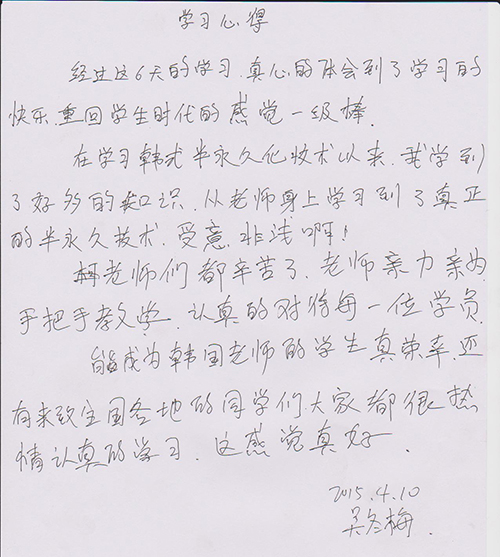 学习心得
经过这6天的学习.真心的体会到了学习的
快乐.重回学生时代的感觉一级棒.
在学习韩式半永久化妆术以来.我学到
了好多的知识.从老师身上学习到了真正
的半永久技术.受意非浅啊!
老师们都辛苦了.老师亲力亲为
手把手教学.认真的对待每一位学员.
能成为韩国老师的学生真荣幸.还
有来致全国各地的同学们.大家都很热
情认真的学习.这感觉真好.
2015.4.10
吴冬梅